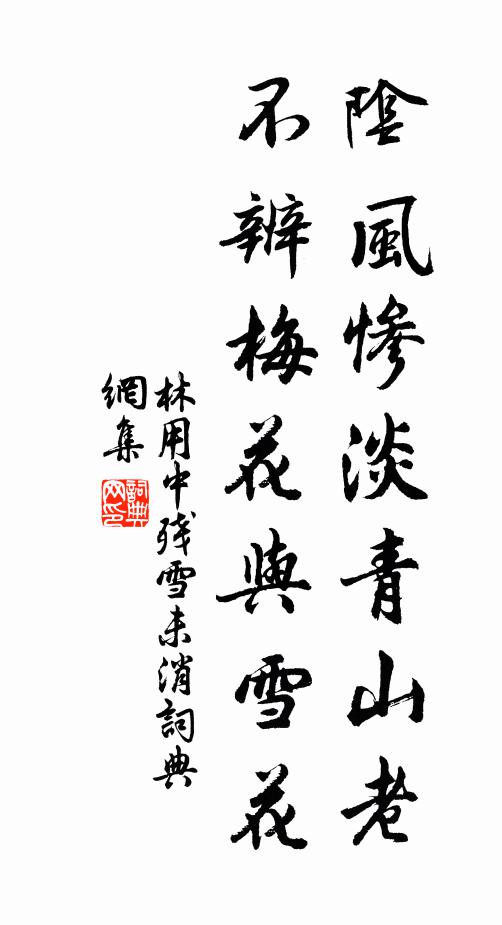 陰風慘淡青山老
不辨梅花與雪花
林用中殘雪未消詞典
網集
詞典
网印